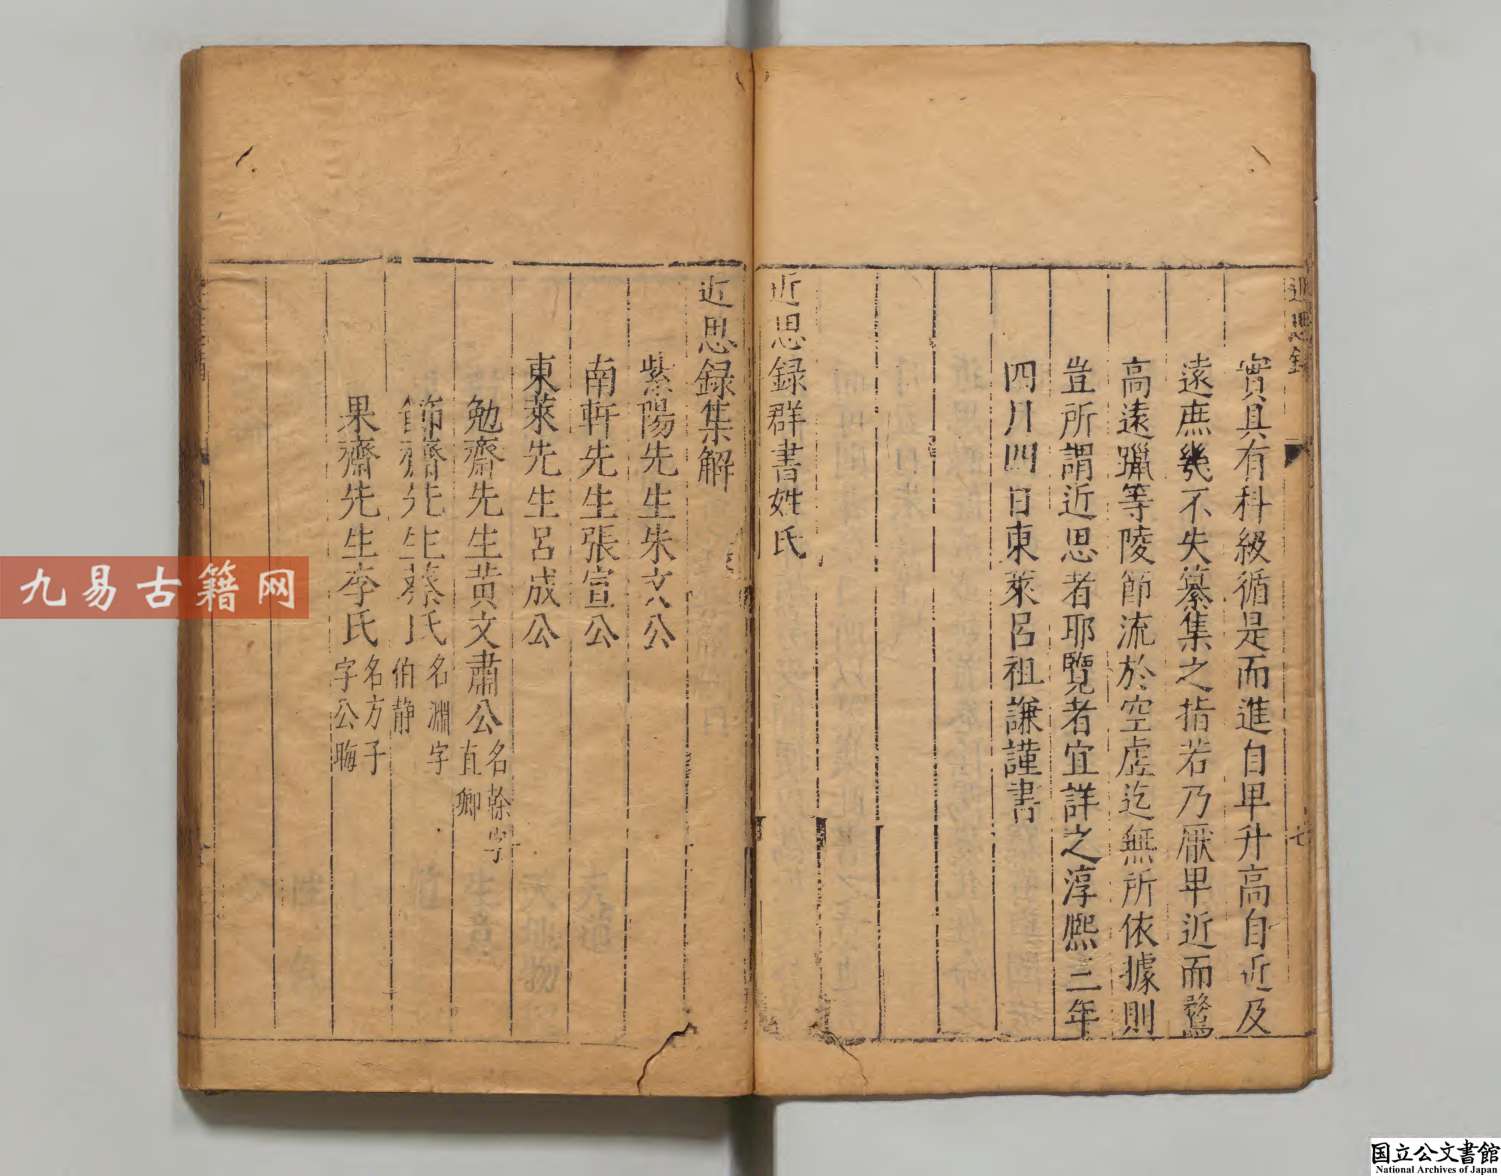 近思録
實具有科級循是而進自卑升高自近及
遠庶幾不失纂集之指若乃厭卑近而騖
高遠躐等陵節流於空虛迄無所依據則
豈所謂近思者耶覽者宜詳之淳熙三年
四月四日東萊呂祖謙謹書
近思録群書姓氏
七
近思録集解
紫陽先生朱文公
南軒先生張宣公
東萊先生呂成公
勉齋先生黃文肅公名榦字
直卿
節齋先生蔡氏名淵字
伯静
果齋先生李氏名方子
字公晦
九易古籍网
国立公文書館
National Archives of Japan